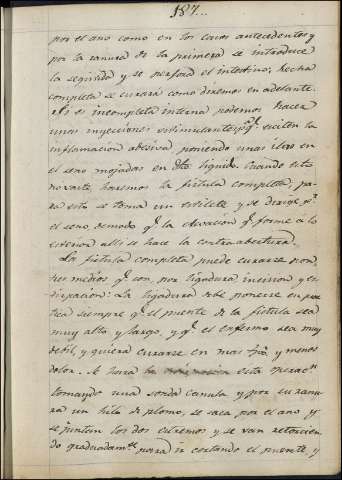 187...
por el ano como en los casos antecedentes y
por la ranura de la primera se introduce
la segunda y se perfora el intestino; hecha
completa se curará como diremos en adelante.
Si es incompleta interna podemos hacer
unas inyecciones estimulantes pª qᵉ exciten la
inflamacion adesiva poniendo unas ilas en
el seno mojadas en dho liquido. Cuando esto
no baste haremos la fistula completa, pa
ra esto se toma un estilete y se dirige pʳ
el seno, de modo qᵉ la elevacion qᵉ forme a lo
esterior alli se hace la contraabertura.
La fistula completa puede curarse por
tres medios qᵉ son, por ligadura incision y es-
cision: La ligadura debe ponerse en prac
tica siempre qᵉ el puente de la fistula sea
muy alto y largo, y qᵉ el enfermo sea muy
debil, y quiera curarse en mas tpo y menos
dolor. Se hace la esta operacⁿ
tomando una sonda canula y por su ranu
ra un hilo de plomo, se saca por el ano y
se juntan los dos extremos y se van retorcien
do graduadamᵗᵉ para ir cortando el puente y